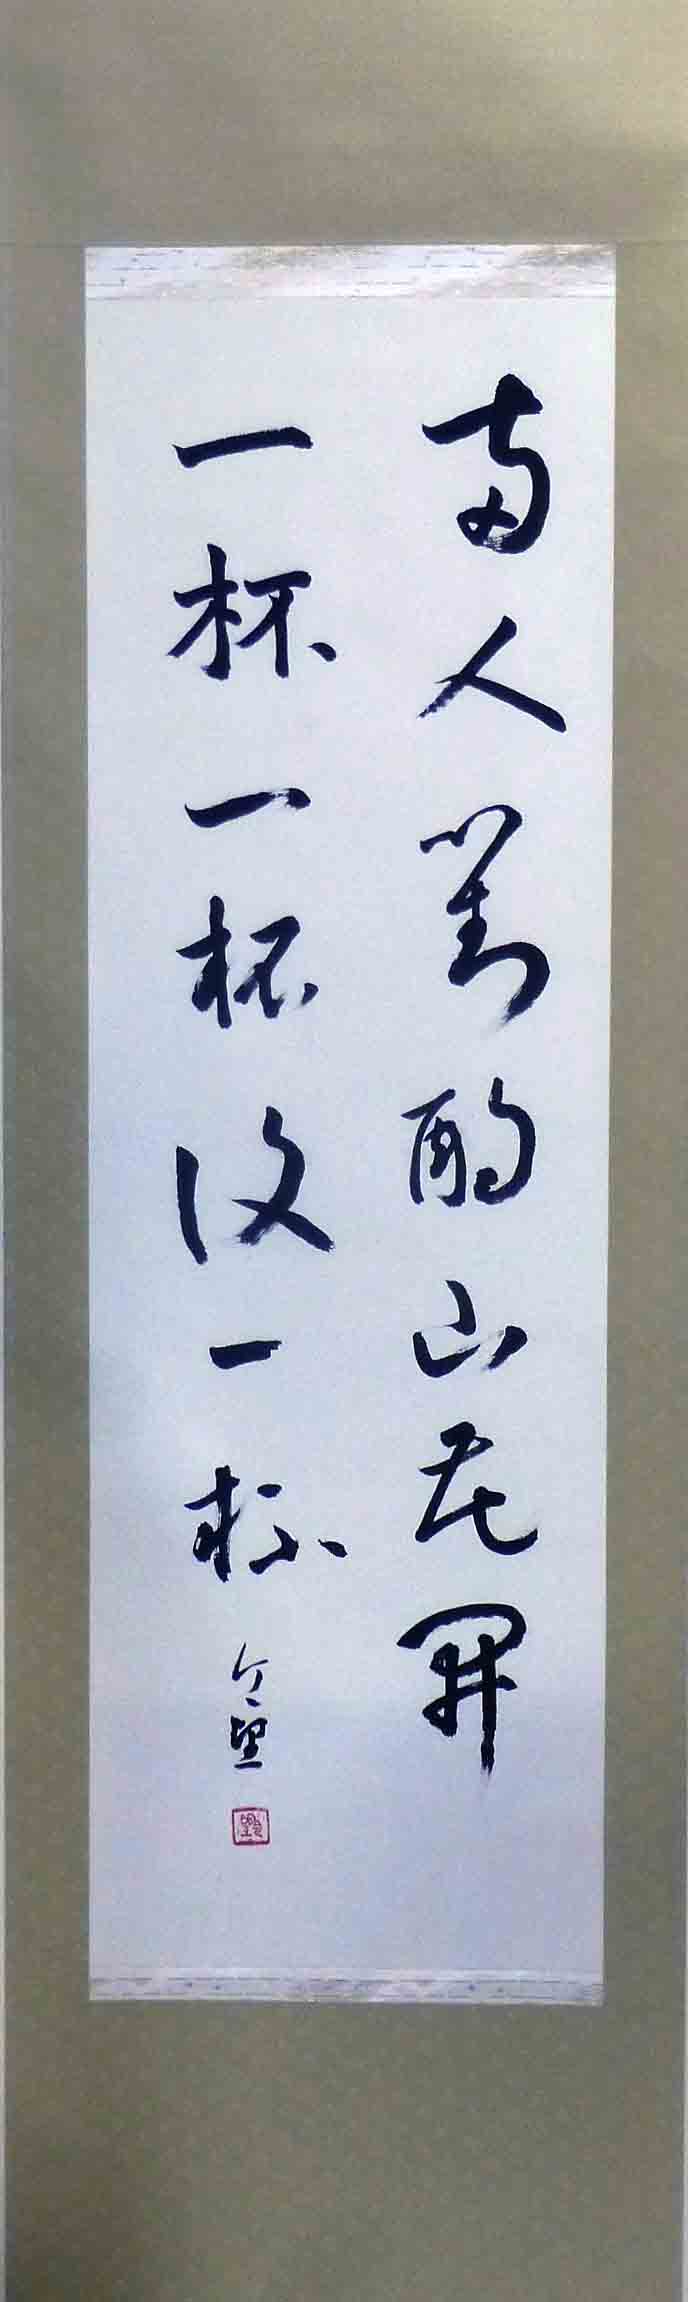 両人對酌山花開
一杯一杯復一杯